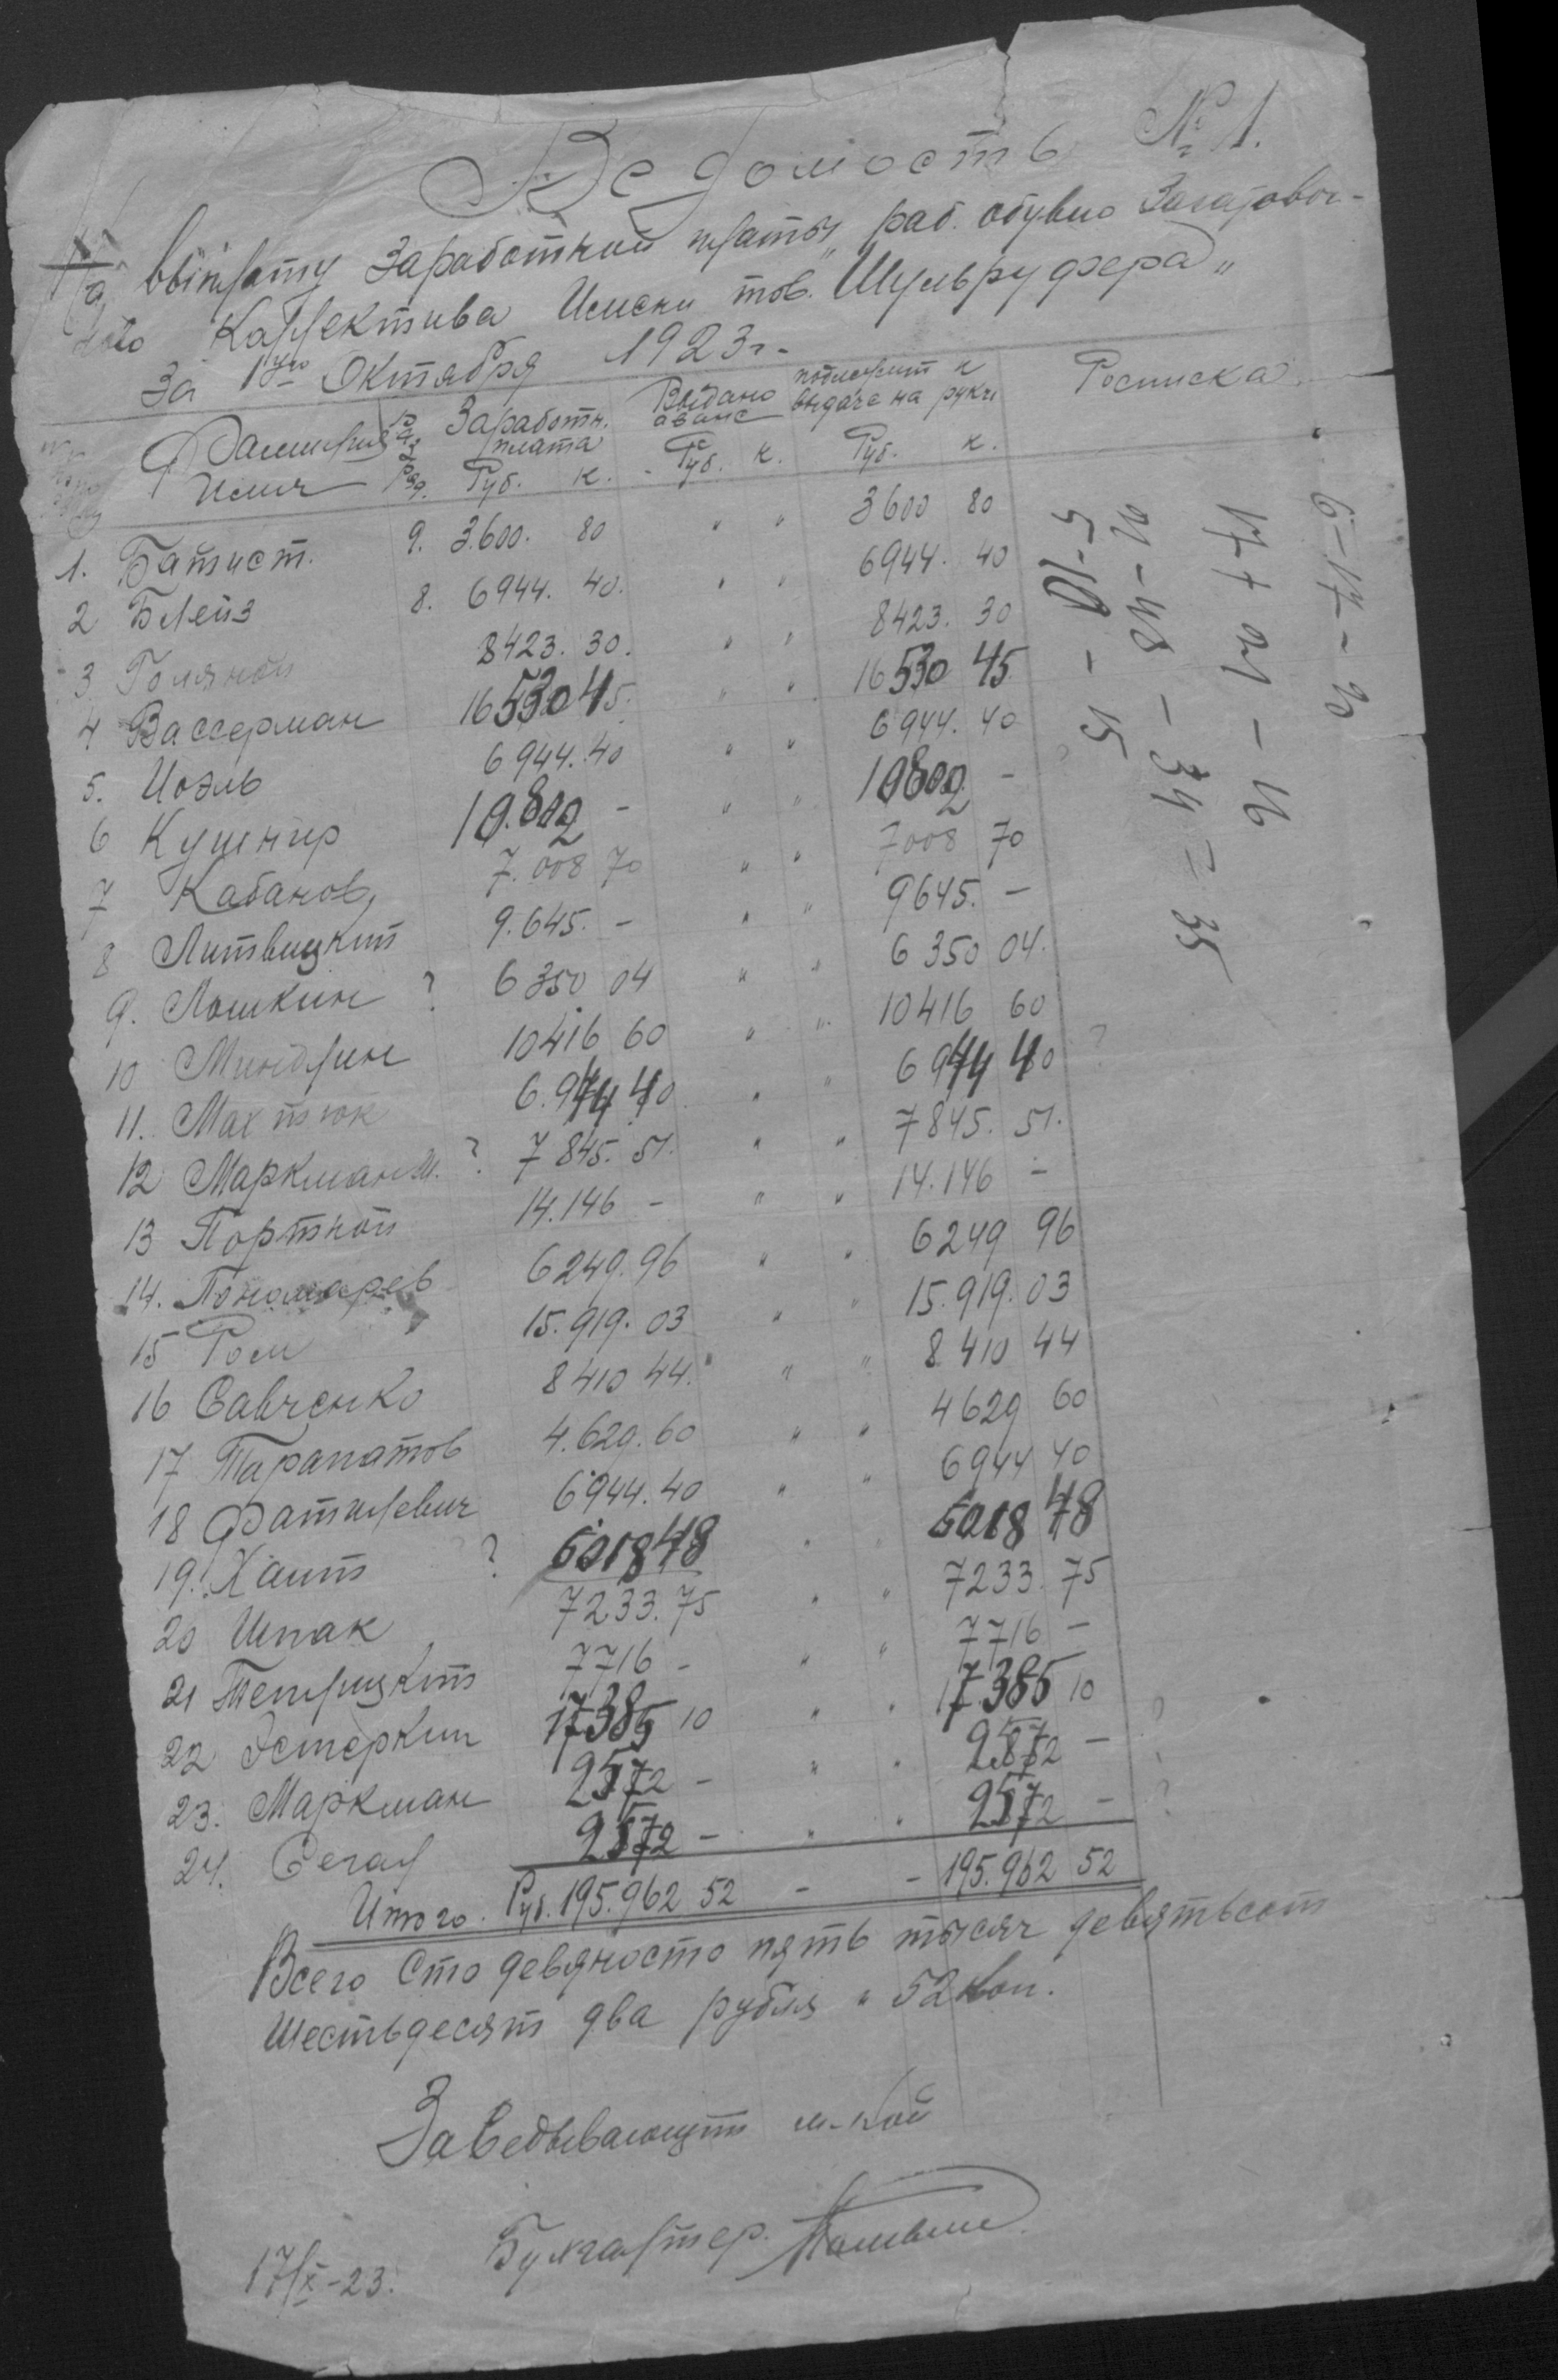 Ведомость № 1.
На выплату Заработной платы раб. обувно Заготовоч-
ного Коллектива Имени тов. "Шульруфера"
За 1ую Октября 1923 г.
Фамилия Имя Разряд. Заработн. плата Выдано аванс подлежит к выдаче на руки Росписка
Руб. к. Руб. к. Руб. к.
1. Батист. 9. 3.600. 80 " " 3600 80
2 Блейз 8. 6944. 40. " " 6944. 40
3 Голяной 8423. 30. " " 8423. 30
4 Вассерман 16530 45. " " 16530 45
5. Иоэль 6944. 40 " " 6944. 40
6 Кушнир 10.802 - " " 10802 -
7 Кабанов 7.008 70 " " 7008 70
8 Литвицкий 9.645. - " " 9645. -
9. Лошкин ? 6350 04 " " 6350 04.
10 Миндлин 10416 60 " " 10416 60
11. Махтюк 6.944 40 " " 6944 40 ?
12 Маркман М. ? 7845. 51. " " 7845. 51.
13 Портной 14.146 - " " 14.146 -
14. Пономарев 6249. 96 " " 6249 96
15 Ром 15.919. 03 " " 15.919. 03
16 Савченко 8410 44. " " 8410 44
17 Тарапатов 4.629. 60 " " 4629 60
18 Фатилевич 6944. 40 " " 6944 40
19. Хаит ? 6018 48 " " 6018 48
20 Шпак 7233. 75 " " 7233. 75
21 Теплицкий 7716 - " " 7716 -
22 Эстеркин 17385 10 " " 17.385 10
23. Маркман 2572 - " " 2572 - ?
24. Сегал 2572 - " " 2572 - ?
Итого. Руб. 195.962 52 - - 195.962 52
Всего Сто девяносто пять тысяч девятьсот
Шестьдесят два рубля " 52 коп.
Заведывающий м-кой
Бухгалтер.
17/X-23.
6-17-20
17 + 21 - 16
20-48 - 34 = 35
5-10 - 15